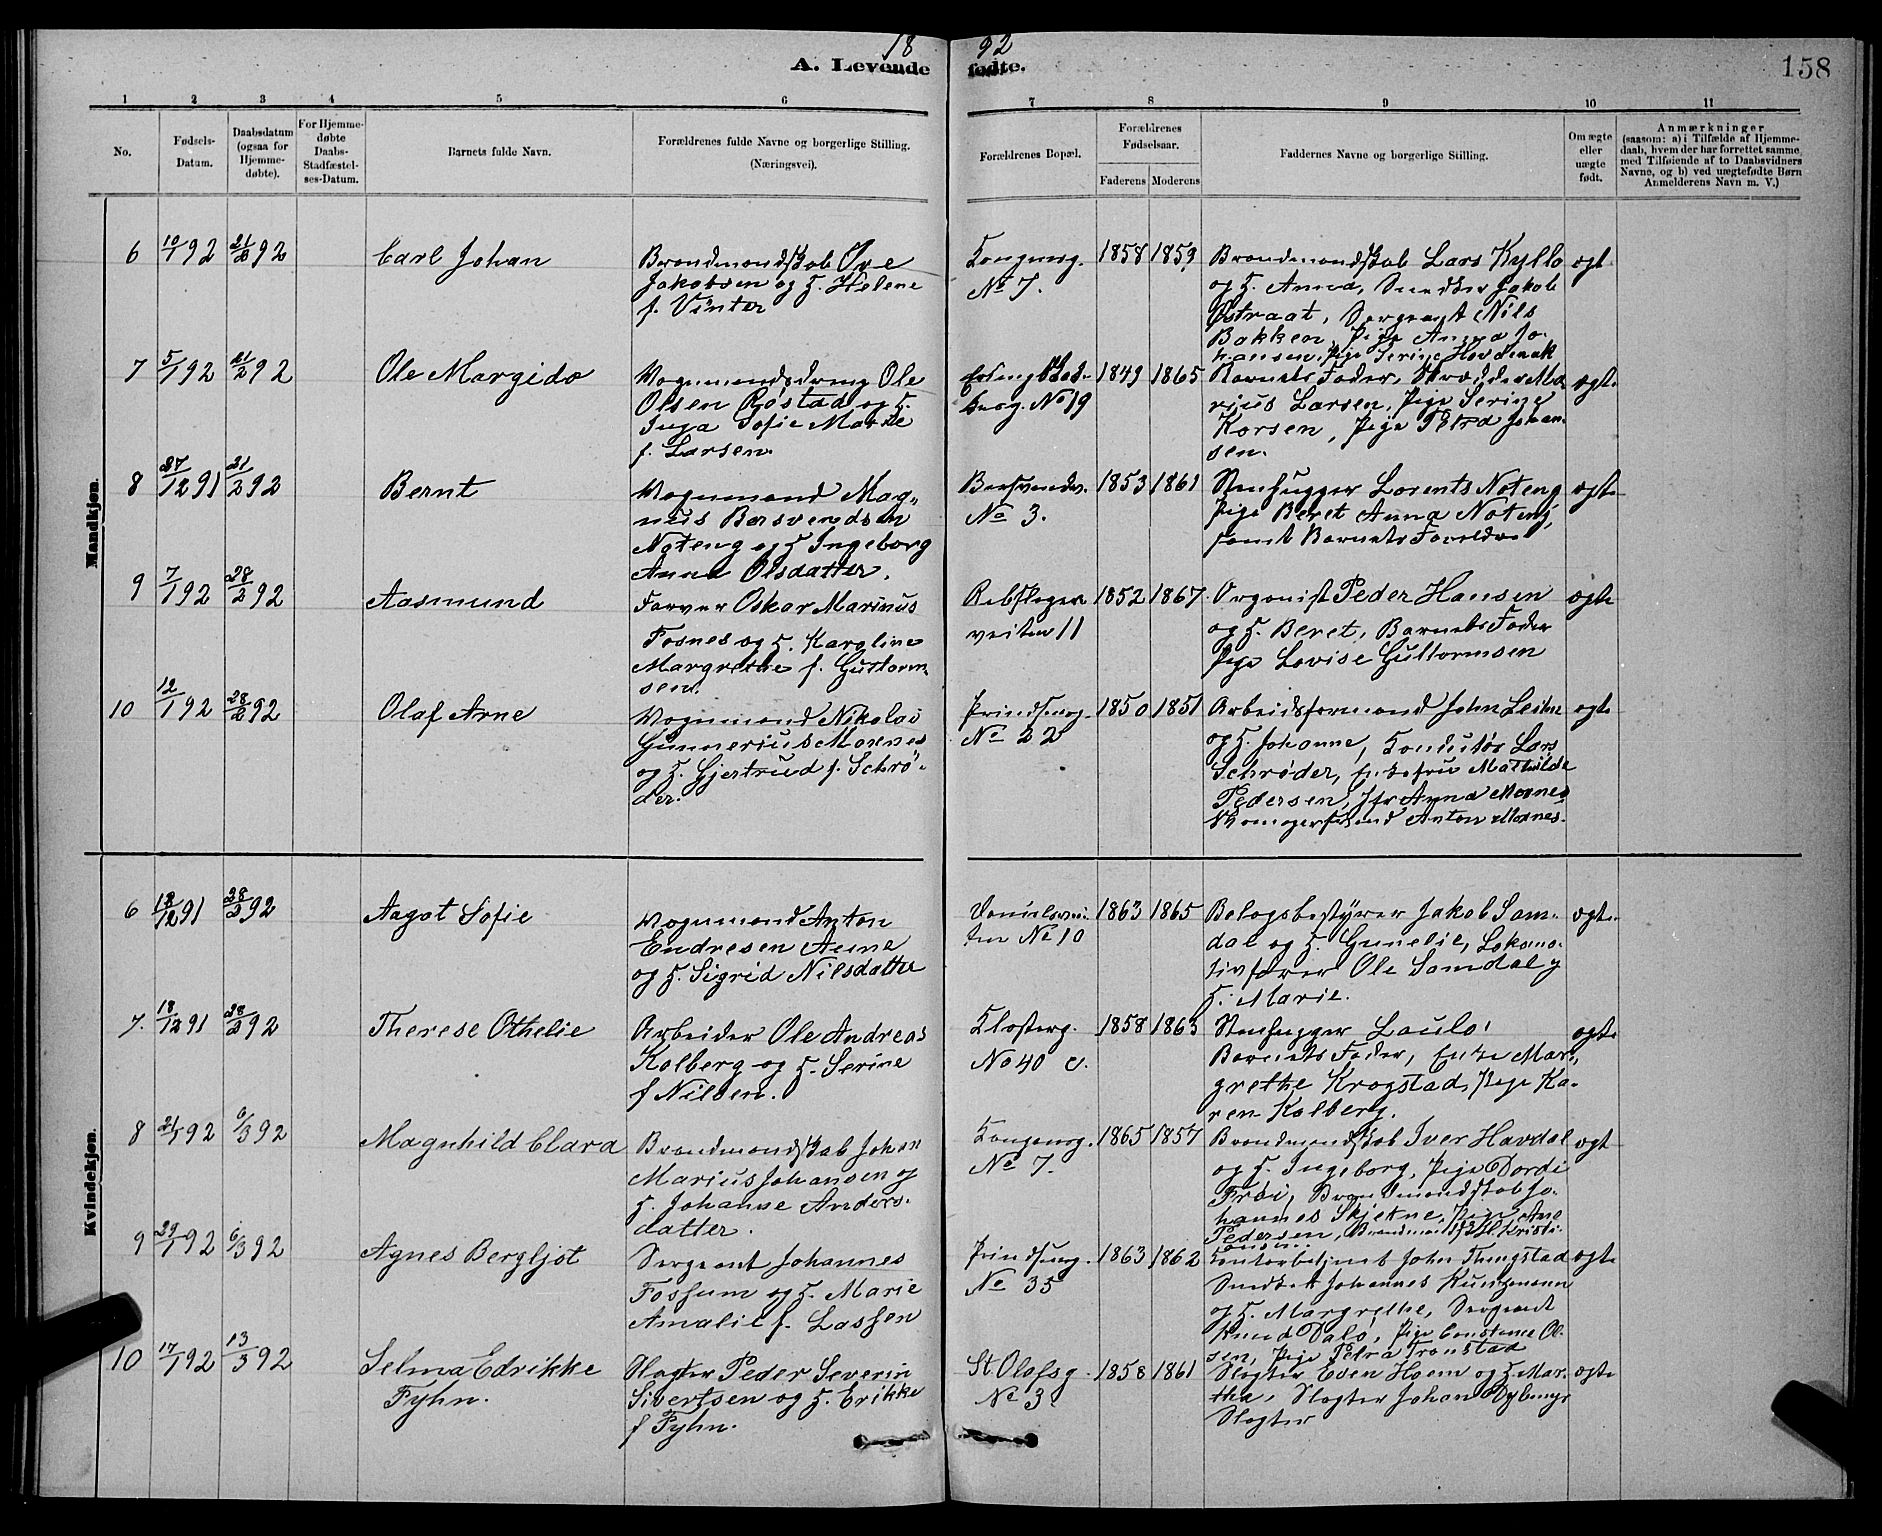 18 92
A. Levende fødte.
158
1 2 3 4 5 6 7 8 9 10 11
No.
Fødsels-
Datum.
Daabsdatum
(ogsaa for
Hjemme-
døbte).
For Hjemme-
døbte
Daabs-
Stadfæstel-
ses-Datum.
Barnets fulde Navn.
Forældrenes fulde Navne og borgerlige Stilling.
(Næringsvei).
Forældrenes Bopæl.
Forældrenes
Fødselsaar.
Faderens Moderens
Faddernes Navne og borgerlige Stilling.
Om ægte
eller
uægte
født.
Anmærkninger
(saasom: a) i Tilfælde af Hjemme-
daab, hvem der har forrettet samme,
med Tilføiende af to Daabsvidners
Navne, og b) ved uægtefødte Børn
Anmelderens Navn m. V.)
Mandkjøn.
6 10/1 92 21/2 92
Carl Johan
Brandmandskab Ove
Jakobsen og H. Helene
f. Vinter
Kongensg.
No 7.
1858 1859
Brandmandskab Lars Kyllo
og H. Anna, Snedker Jakob
Østraat, Sergeant Nils
Bakken, Pige Anna Jo-
hansen, Pige Serine Hovdenak
ægt
7 5/1 92 21/2 92
Ole Margido
Vognmandsdreng Ole
Olsen Røstad og H.
Inga Sofie Marie
f. Larsen.
No 19
1849 1865
Barnets Fader, Skrædder Ma-
rius Larsen, Pige Serine
Korsen, Pige Petra Johan-
sen.
ægte
8 27/12 91 21/2 92
Bernt
Vognmand Mag-
nus Barsvendsen
Noteng og H. Ingeborg
Anna Olsdatter.
Bersvendv.
No 3.
1853 1861
Stenhugger Lorents Noteng
Pige Beret Anna Noteng,
samt Barnets Forældre
ægte
9 7/1 92 28/2 92
Aasmund
Farver Oskar Marinus
Fosnes og H. Karoline
Margrethe f. Guttorm-
sen.
Rebslager
veiten 11
1852 1867
Organist Peder Hansen
og H. Beret, Barnets Fader
Pige Lovise Guttormsen
ægte
10 12/1 92 28/2 92
Olaf Arne
Vognmand Nikolai
Gunnerius Moxnes
og H. Gjertrud f. Schrø-
der.
Prindsensg.
No 22
1850 1851
Arbeidsformand John Leihn
og H. Johanne, Konduktør Lars
Schrøder, Enkefru Mathilde
Pedersen, Jfr Anna Moxnes
Skomagersvend Anton Moxnes.
ægte
Kvindekjøn.
6 12/12 91 28/2 92
Aagot Sofie
Vognmand Anton
Endresen Aune
og H. Sigrid Nilsdatter
Danielsvei-
ten No 10
1863 1865
Bolagsbestyrer Jakob Som-
dal og H. Gunelie, Lokomo-
tivfører Ole Somdal og
H. Marie.
ægte
7. 18/12 91 28/2 92
Therese Othelie
Arbeider Ole Andreas
Kolberg og H. Serine
f Nilsen.
Klosterg.
No 40 c.
1858 1863
Stenhugger Laulo,
Barnets Fader, Enke Mar-
grethe Krogstad, Pige Ka-
ren Kolberg.
ægte
8 21/1 92 6/3 92
Magnhild Clara
Brandmandskab Johan
Marius Johansen og
H. Johanne Anders-
datter.
Kongensg.
No 7.
1865 1857
Brandmandskab Iver Havdal
og H. Ingeborg, Pige Dordi
Frøi, Brandmandskab Jo-
hannes Skjetne, Pige Ane
Pedersen, Brandmandsk. H. Kristi-
ansen.
ægt
9 29/1 92 6/3 92
Agnes Bergljot
Sergeant Johannes
Fossum og H. Marie
Amalie f. Lassen
Prindsensg.
No 35
1863 1862
Kontorbetjent John Tungstad
Snedker Johannes Kunzmann
og H. Margrethe, Sergeant
Knud Dalø, Pige Constance Ol-
sen, Pige Petra Tronstad
ægte
10 17/1 92 13/3 92
Selma Edrikke
Fyhn.
Slagter Peder Severin
Sivertsen og H. Erikke
f Fyhn.
St. Olafsg.
No 3
1858 1861
Slagter Even Hoem og H. Mar-
tha, Slagter Johan
Slagter
ægte